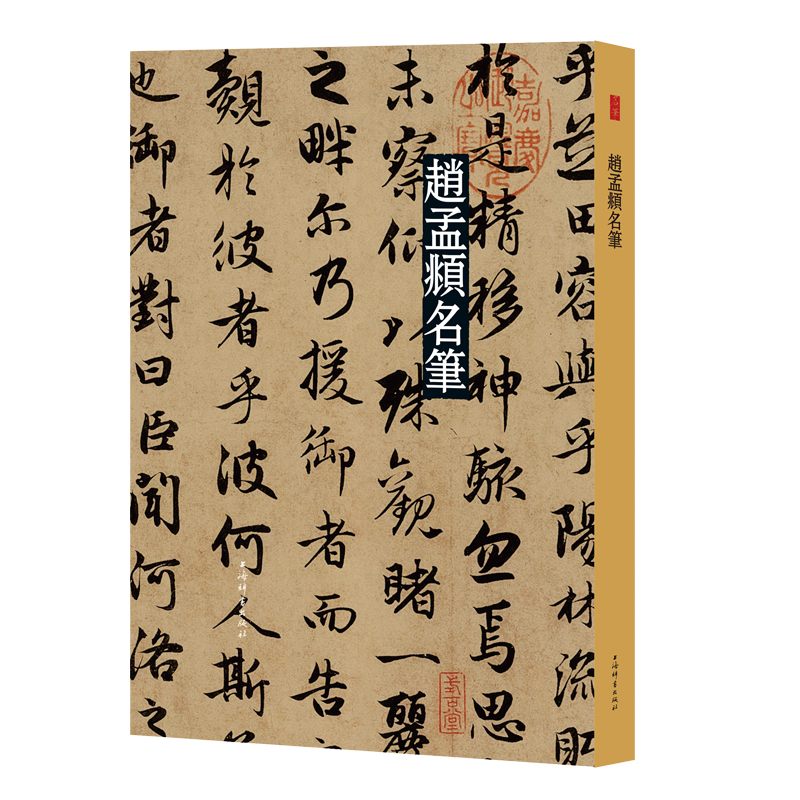 趙孟頫名筆
乎芝田容與乎陽林流
於是精移神駭忽焉思
未察仰以殊觀睹一麗
之畔尔乃援御者而告之
覿於彼者乎彼何人斯
也御者對曰臣聞河洛之
嘉慶
上海辭書出版社
趙孟頫名筆
上海辭書出版社